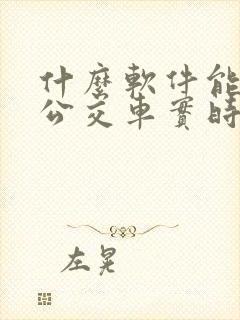 什麼軟件能
公交車實時
左晃